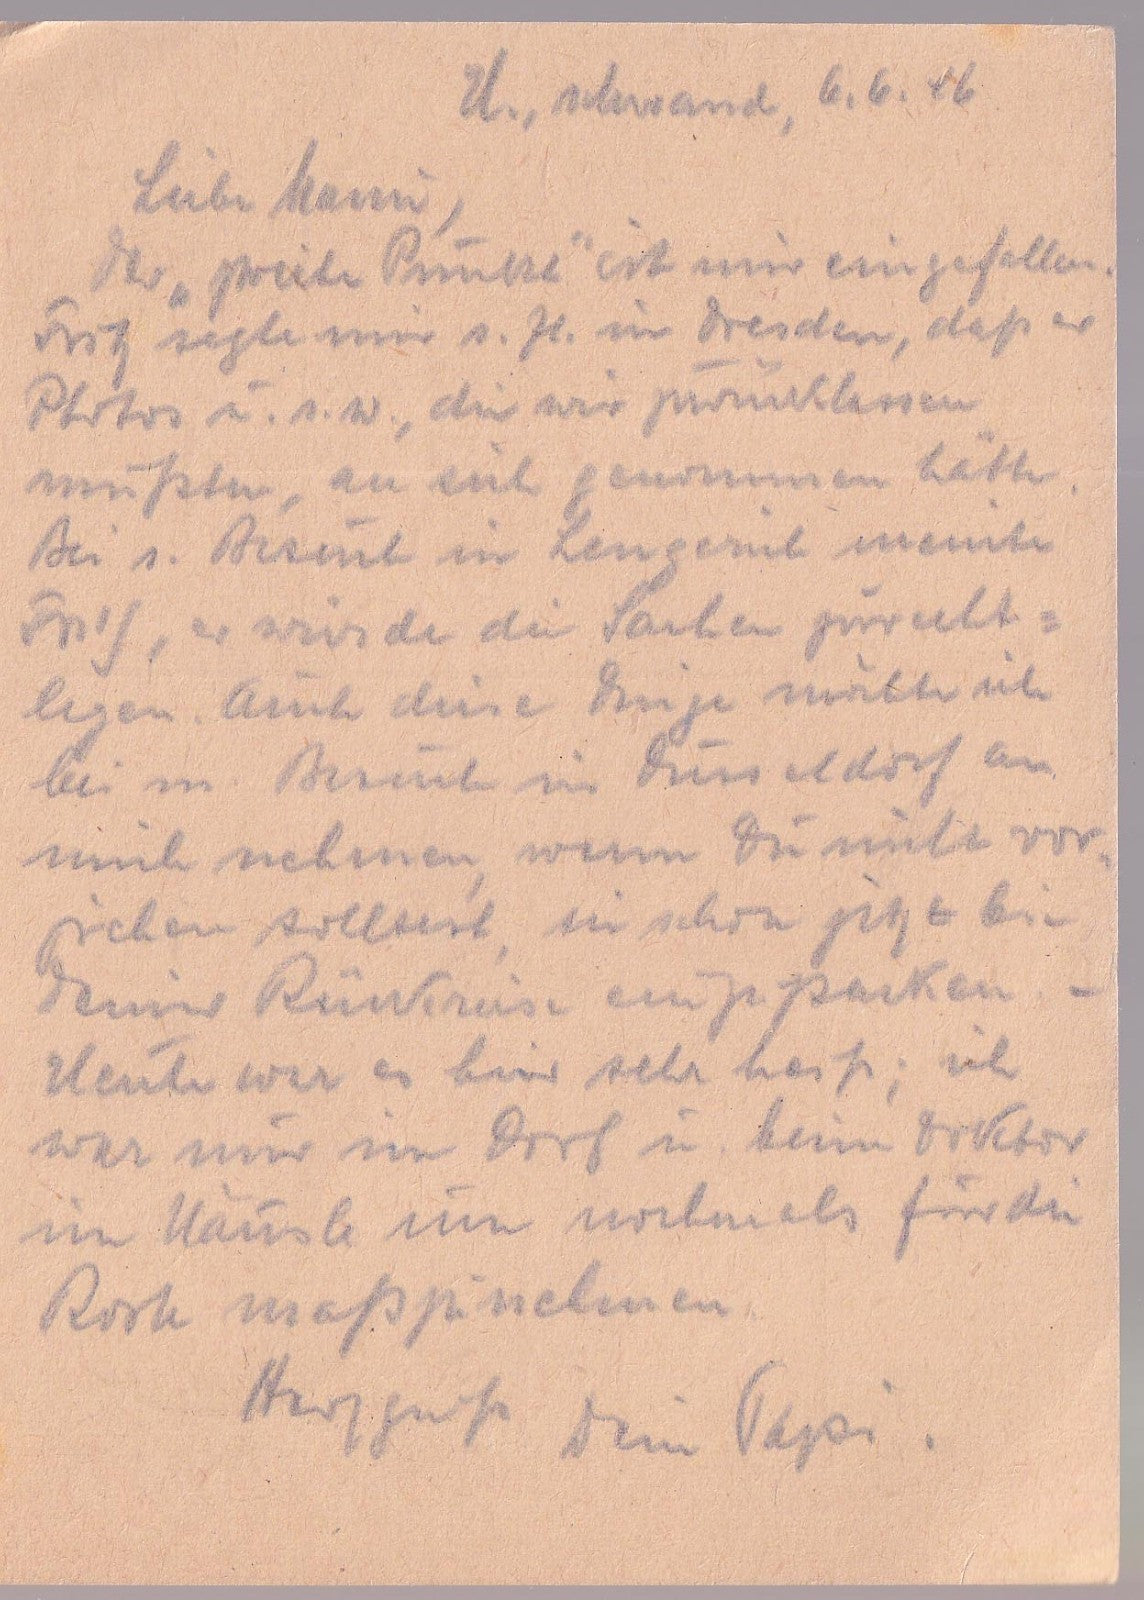 U., schwand, 6.6.46
Liebe Mami,
Der „zweite Punkt" ist mir eingefallen.
Fritz sagte mir s. Zt. in Dresden, daß er
Photos u. s. w., die wir zurücklassen
mußten, an sich genommen hätte.
Bei s. Besuch in Lengerich meinte
Fritz, er würde die Sachen zurecht=
legen. Auch diese Dinge möchte ich
bei m. Besuch in Düsseldorf an
mich nehmen, wenn Du nicht vor-
ziehen solltest, sie schon jetzt bei
Deiner Rückreise einzupacken. –
Heute war es hier sehr heiß; ich
war nur im Dorf u. beim Doktor
im Häusle um nochmals für die
maßzunehmen
Herzgruß Dein Papi.